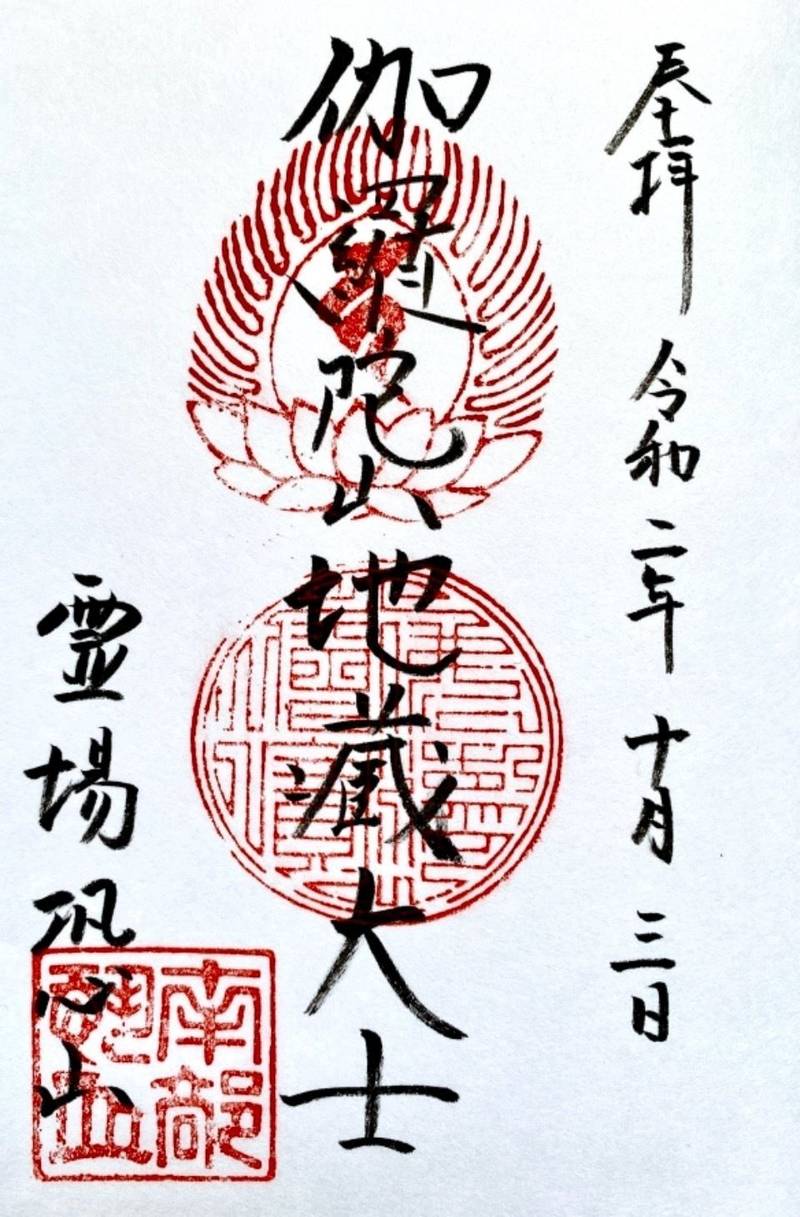 奉拝 令和二年 十月 三日
伽羅陀山地蔵大士
霊場恐山
南部
恐山